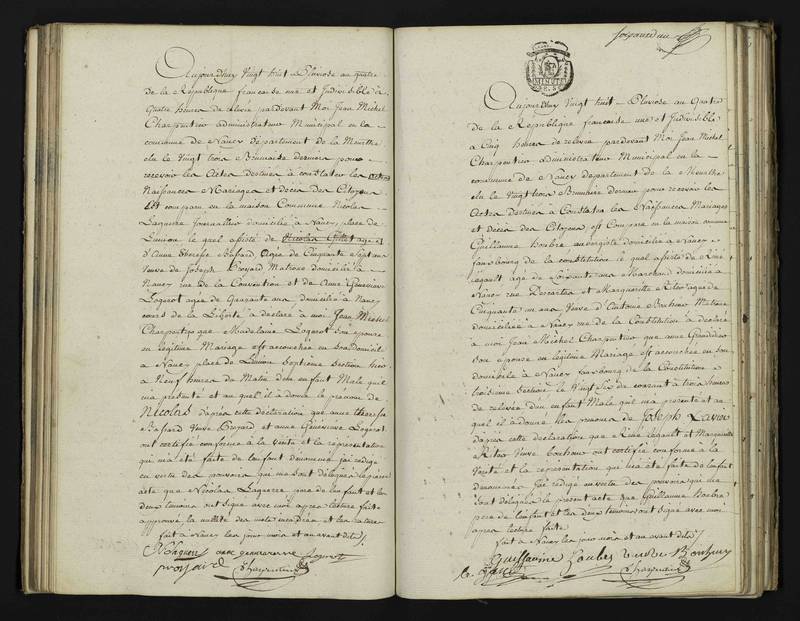 Aujourd'huy Vingt huit Pluviose an quatre
de la République francaise une et Indivisible à
quatre heures de relevée pardevant Moi Jean Michel
Charpentier administrateur Municipal en la
commune de Nancy Département de la Meurthe
élu le Vingt trois Brumaire dernier pour
recevoir les Actes destinés à constater les
Naissances Mariages et décès des Citoyens
Est comparu en la maison Commune Nicolas
Laguerre Journallier domicilié à Nancy place de
Lunion le quel assisté de Nicolas Gillet agé
d'Anne Therese Bassard agée de Cinquante Sept ans
Veuve de Joseph Broyard Matrone domiciliée à
Nancy rue de la Convention et de Anne Geneviéve
Logerot agée de Quarante ans domiciliée à Nancy
cours de la Liberté a déclaré à moi Jean Michel
Charpentier que Madelaine Logerot son épouse
en légitime Mariage est accouchée en son domicil
à Nancy place de Lunion Septieme Section hier
à Neuf heures du Matin d'un enfant Male quil
ma présenté et au quel il a donné le prenom de
Nicolas d'après cette déclaration que anne therese
Bassard Veuve Broyard et anne Geneviéve Logerot
ont certifié conforme à la verité et la représentation
qui ma été faite de l'enfant dénommé jai rédigé
en vertu des pouvoirs qui me sont délégués le présent
acte que Nicolas Laguerre pere de l'enfant et les
deux temoins ont signé avec moi après lecture faite
approuvé la nullité des mots
fait à Nancy les jour mois et an avant dits
Charpentier
MINUTE
Aujourd'huy Vingt huit Pluviose an Quatre
de la République francaise une et Indivisible
à Cinq heures de relevée pardevant Moi Jean Michel
Charpentier administrateur Municipal en la
commune de Nancy département de la Meurthe
élu le Vingt trois Brumaire dernier pour recevoir les
Actes destinés à Constater les Naissances Mariages
et décès des Citoyens est Comparu en la maison commune
Guillaume aubergiste domicilié à Nancy
fauxbourg de la constitution le quel assisté de René
Légault agé de Soixante ans Marchand domicilié à
Nancy rue Descartes et Marguerite agée de
Cinquante un ans Veuve d'Antoine Matrone
domiciliée à Nancy rue de la Constitution à declaré
à moi Jean Michel Charpentier que
Son épouse en legitime Mariage est accouchée en son
domicile à Nancy fauxbourg de la Constitution
troisieme Section le Vingt Six du courant à trois heures
de relevée d'un enfant Male quil ma presenté et au
quel il a donné les prenoms de Joseph Xavier
d'après cette déclaration que René Légault et Marguerite
Veuve ont certifié conforme à la
Verité et la représentation qui ma été faite de l'enfant
dénommé jai rédigé en vertu des pouvoirs qui me
sont délégués le présent acte que Guillaume
pere de l'enfant et les deux temoins ont signé avec moi
après lecture faite
Fait à Nancy les jour mois et an avant dits
Guillaume
Charpentier